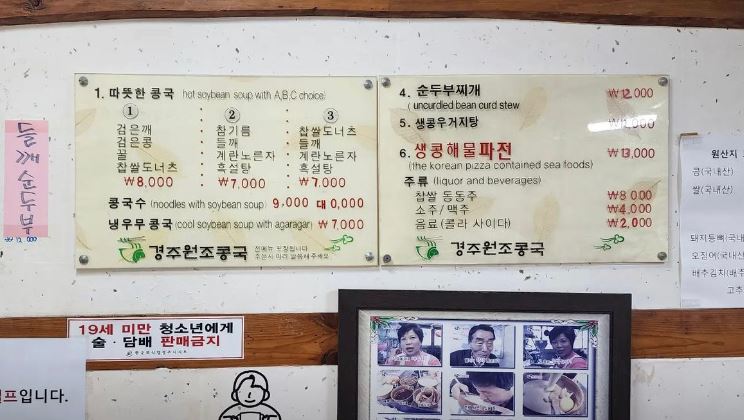 1. 따뜻한 콩국 hot soybean soup with A,B,C choice)
①
검은깨
검은콩
꿀
찹쌀도너츠
₩8,000
②
참기름
들깨
계란노른자
흑설탕
₩7,000
③
찹쌀도너츠
들깨
계란노른자
흑설탕
₩7,000
콩국수 (noodles with soybean soup) 9,000 대 0,000
냉우무콩국 (cool soybean soup with agaragar) ₩7,000
경주원조콩국
4. 순두부찌개 ₩12,000
( uncurdled bean curd stew
5. 생콩우거지탕
6. 생콩해물파전 ₩13,000
(the korean pizza contained sea foods)
주류 (liquor and beverages)
찹쌀 동동주 ₩8,000
소주/맥주 ₩4,000
음료(콜라 사이다) ₩2,000
경주원조콩국
들깨순두부
12,000
원산지
콩(국내산)
쌀(국내산)
돼지등뼈(국내
오징어(국내산
배추김치(배추
고추
19세 미만 청소년에게
술·담배 판매금지
프입니다.